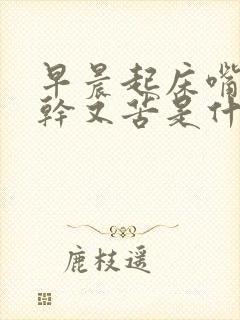 早晨起床嘴
幹又苦是什
鹿枝遥